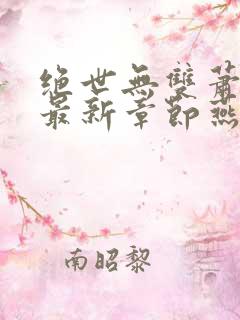 绝世無雙蕭
最新章節燕
南昭黎